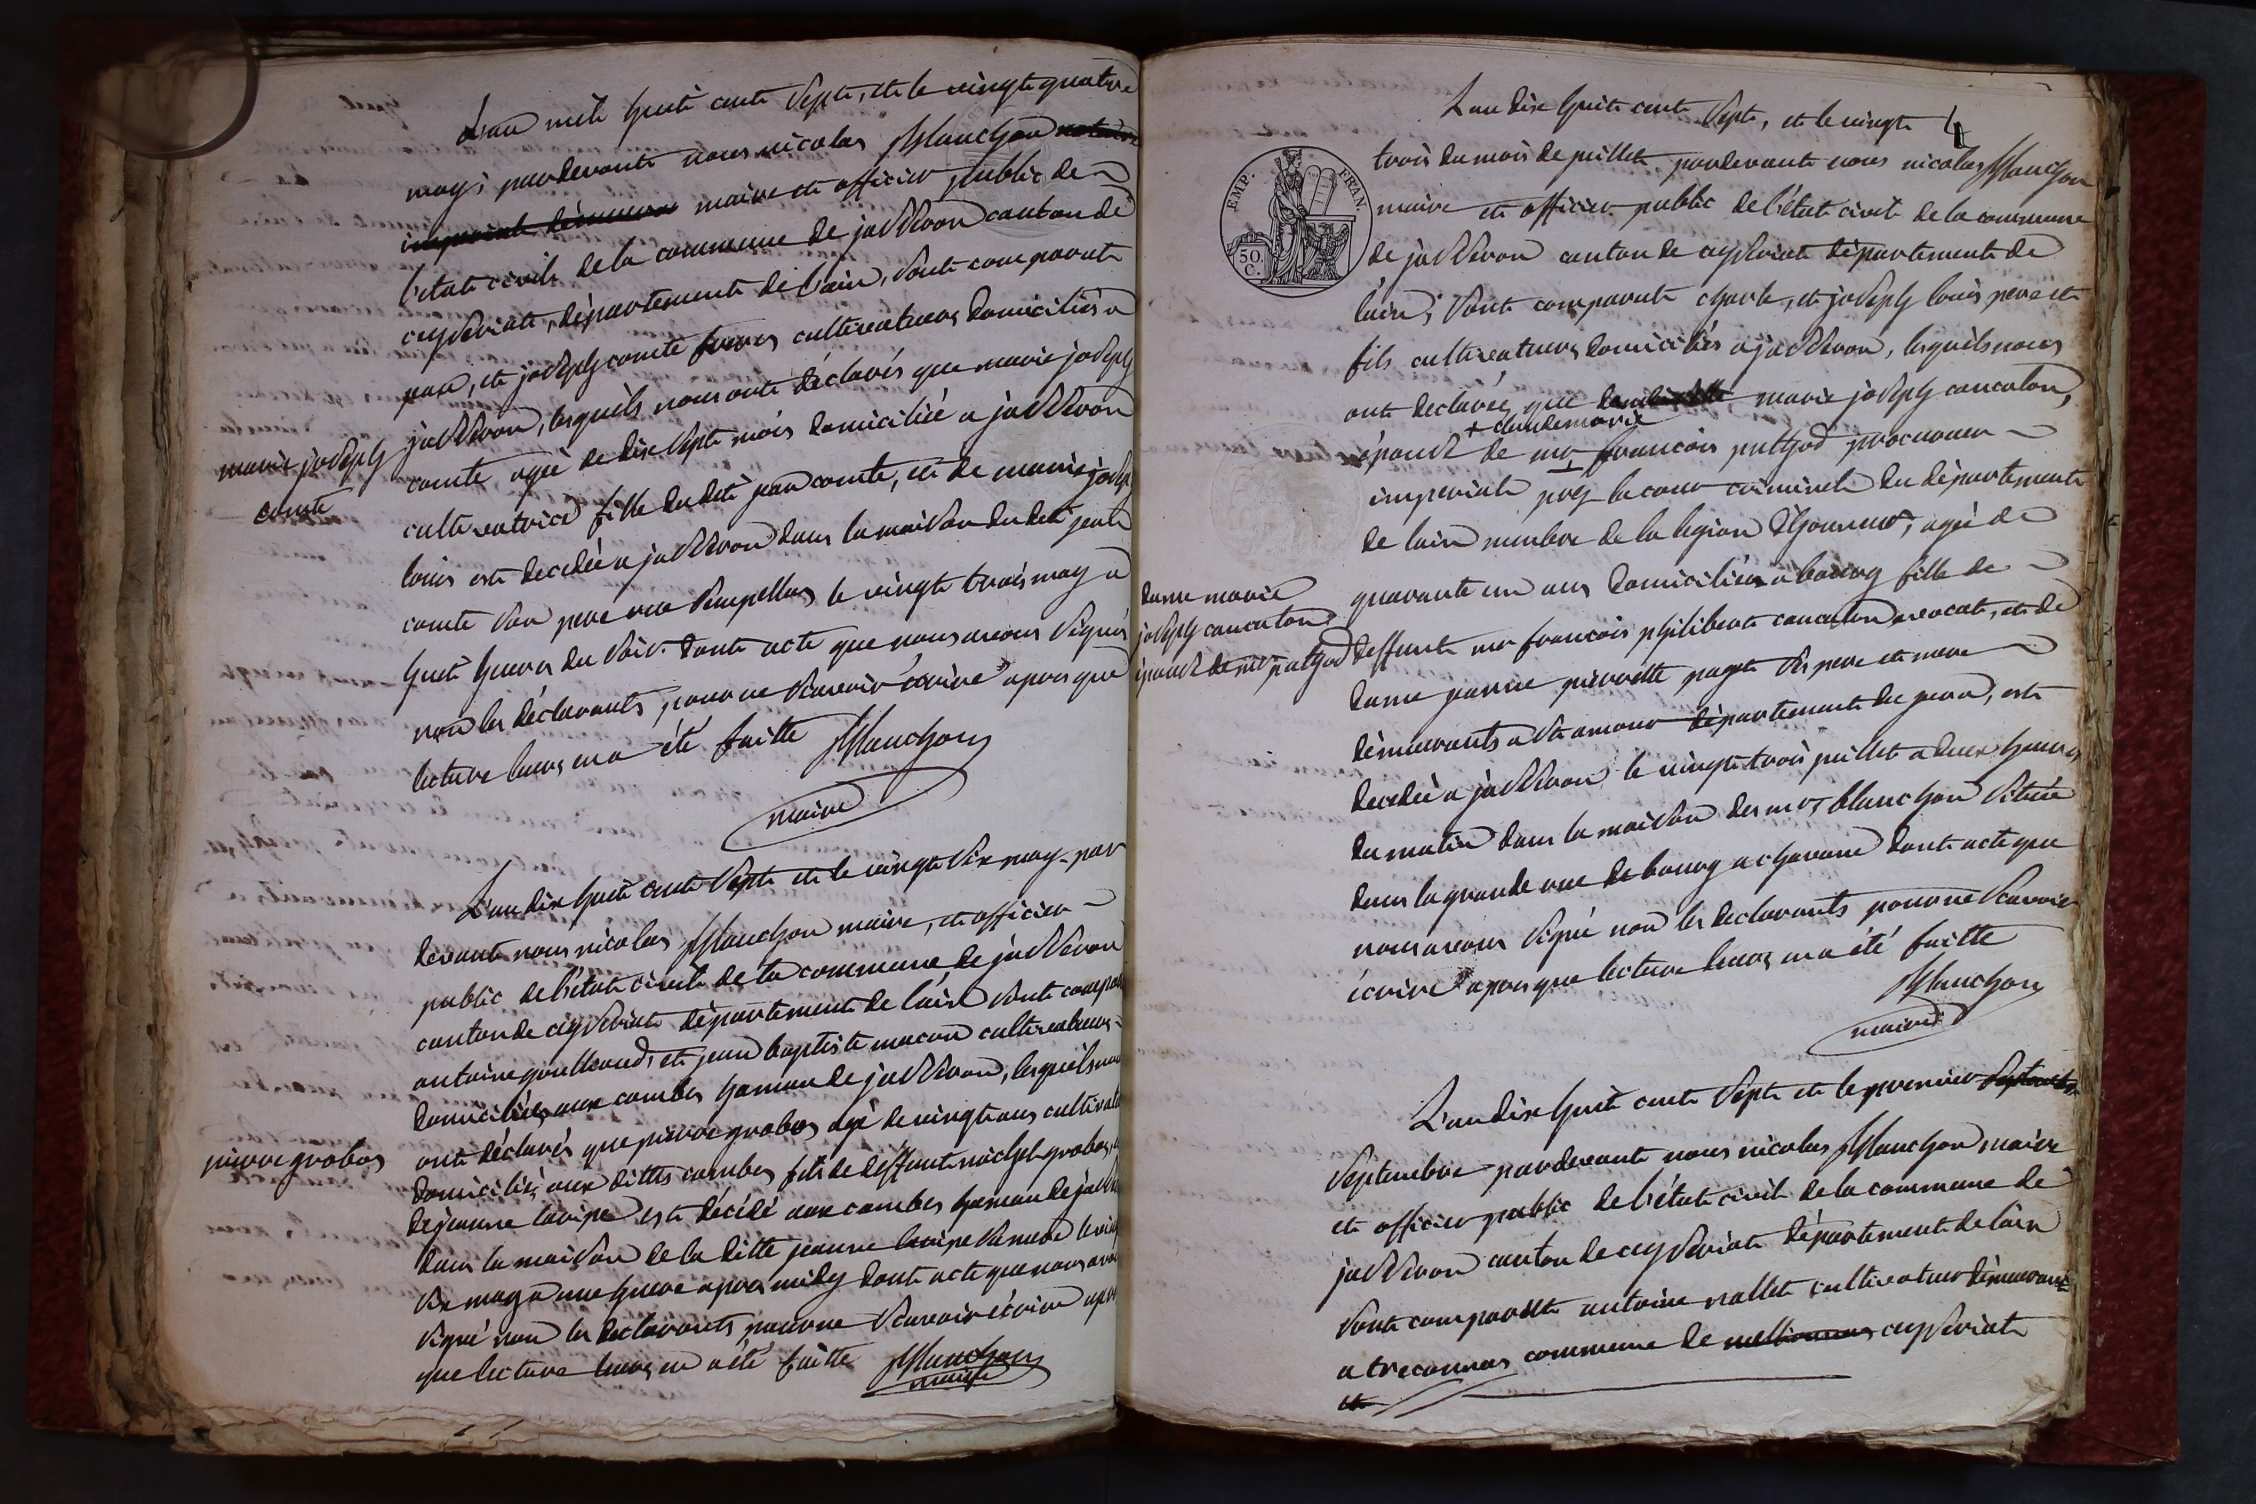 L'an mil huit cent sept, et le vingt quatre
may, pardevant nous nicolas Blanchon notaire
imperiale démeurant maire et officier public de
l'état civil de la commune de jasseron canton de
ceyseriat, département de l'ain, sont comparut
jean, et joseph comte freres cultivateurs domiciliés a
jasseron, lesquels nous ont déclarés que marie joseph
comte agée de dix sept mois domiciliée a jasseron
marie joseph
comte
cultivatrice fille dudit jean comte, et de marie joseph
louis est decedée a jasseron dans la maison dudit jean
comte son pere rue the le vingt trois may a
huit heures du soir. dont acte que nous avons signés
non les déclarants, pour ne scavoir écrire apres que
lecture leurs en a été faitte Blanchon
maire
L'an dix huit cent sept et le vingt six may par
devant nous nicolas Blanchon maire, et officier
public de l'état civil de la commune de jasseron
canton de ceyseriat département de l'ain sont comparu
antoine et jean baptiste macon cultivateurs
domiciliés aux combes hameau de jasseron, lesquels nous
ont déclarés que pierre grobos agé de vingt ans cultivateur
pierre grobos
domicilié aux dittes combes fils de deffunt michel grobos, et
de jeanne est décédé aux combes hameau de jasseron
dans la maison de la ditte jeanne sa mere le vingt
six may a une heure apres midy dont acte que nous avons
signé non les declarants pour ne scavoir écrire apres
que lecture leurs en a été faitte Blanchon
maire
L'an dix huit cent sept, et le vingt
trois du mois de juillet pardevant nous nicolas Blanchon
maire et officier public de l'état civil de la commune
de jasseron canton de ceyseriat département de
EMP. FRAN.
50. C.
l'ain, sont comparut et joseph louis pere et
fils cultivateurs domiciliés a jasseron, lesquels nous
ont declarés que marie joseph cancalon,
+ claude marie
épouse de mr françois puthod procureur
imperiale pres la cour criminel du département
de l'ain membre de la legion d'honneur, agée de
quarante un ans domiciliés a bourg fille de
dame marie
joseph cancalon
épouse de mr puthod
deffunt mr francois philibert cancalon avocat, et de
dame jeanne pierrette ses pere et mere
démeurants a st amour département du jura, est
decedée a jasseron le vingt trois juillet a deux heures
du matin dans la maison des mrs blanchon située
dans la grande rue de bourg a chavane dont acte que
nous avons signé non les declarants pour ne scavoir
écrire apres que lecture leurs en a été faitte
Blanchon
maire
L'an dix huit cent sept et le premier septembre
septembre pardevant nous nicolas Blanchon maire
et officier public de l'état civil de la commune de
jasseron canton de ceyseriat département de l'ain
sont comparut antoine cultivateur démeurant
a treconnas commune de ceyseriat
et